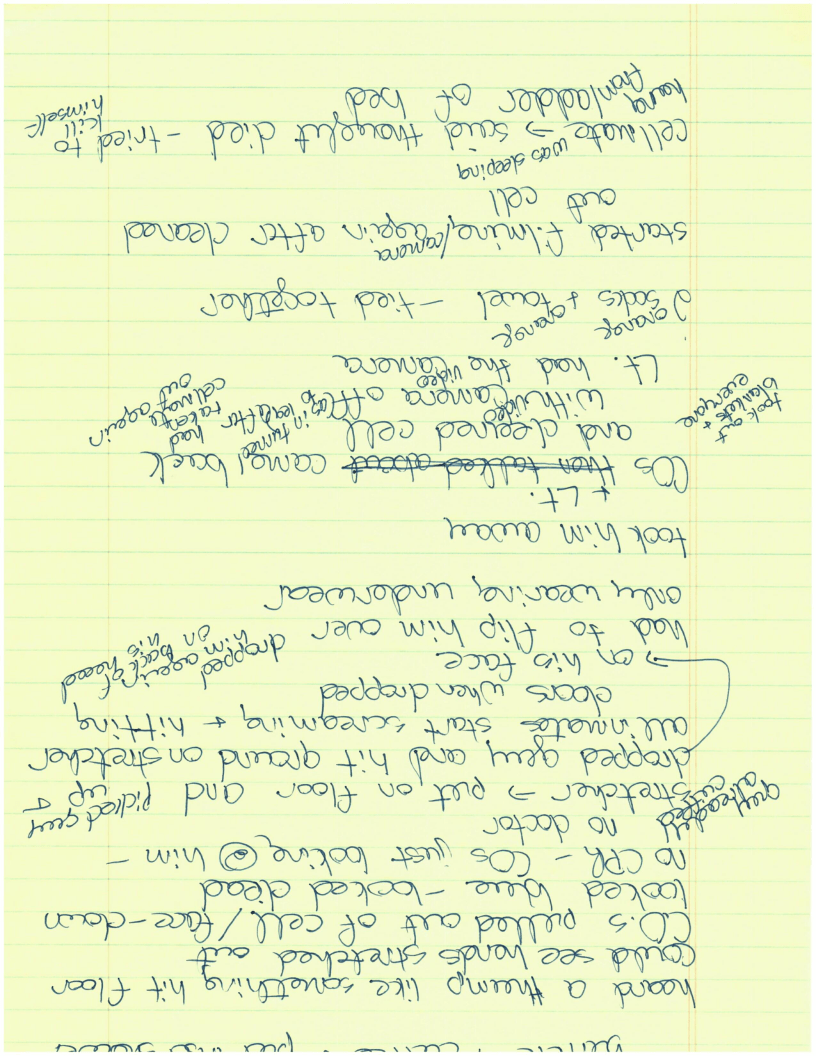 heard a thump like something hit floor
could see hands stretched out
C.O.s pulled out of cell/face-down
looked blue - looked dead
no CPR - COs just looking @ him -
no doctor
guy already cuffed
stretcher → put on floor and picked guy up +
dropped guy and hit ground on stretcher
all inmates start screaming + hitting
doors when dropped
→ on his face
dropped again of him on back of his head
had to flip him over
only wearing underwear
took him away
+ Lt.
COs then talked about came back
and cleaned cell
with video camera off
in tunnel had
took out blankets + everyone
Lt. had the video camera
orange orange
2 socks + towel - tied together
started filming/camera again after cleaned
out cell
was sleeping
cellmate → said thought died - tried to kill himself
hang from ladder of bed